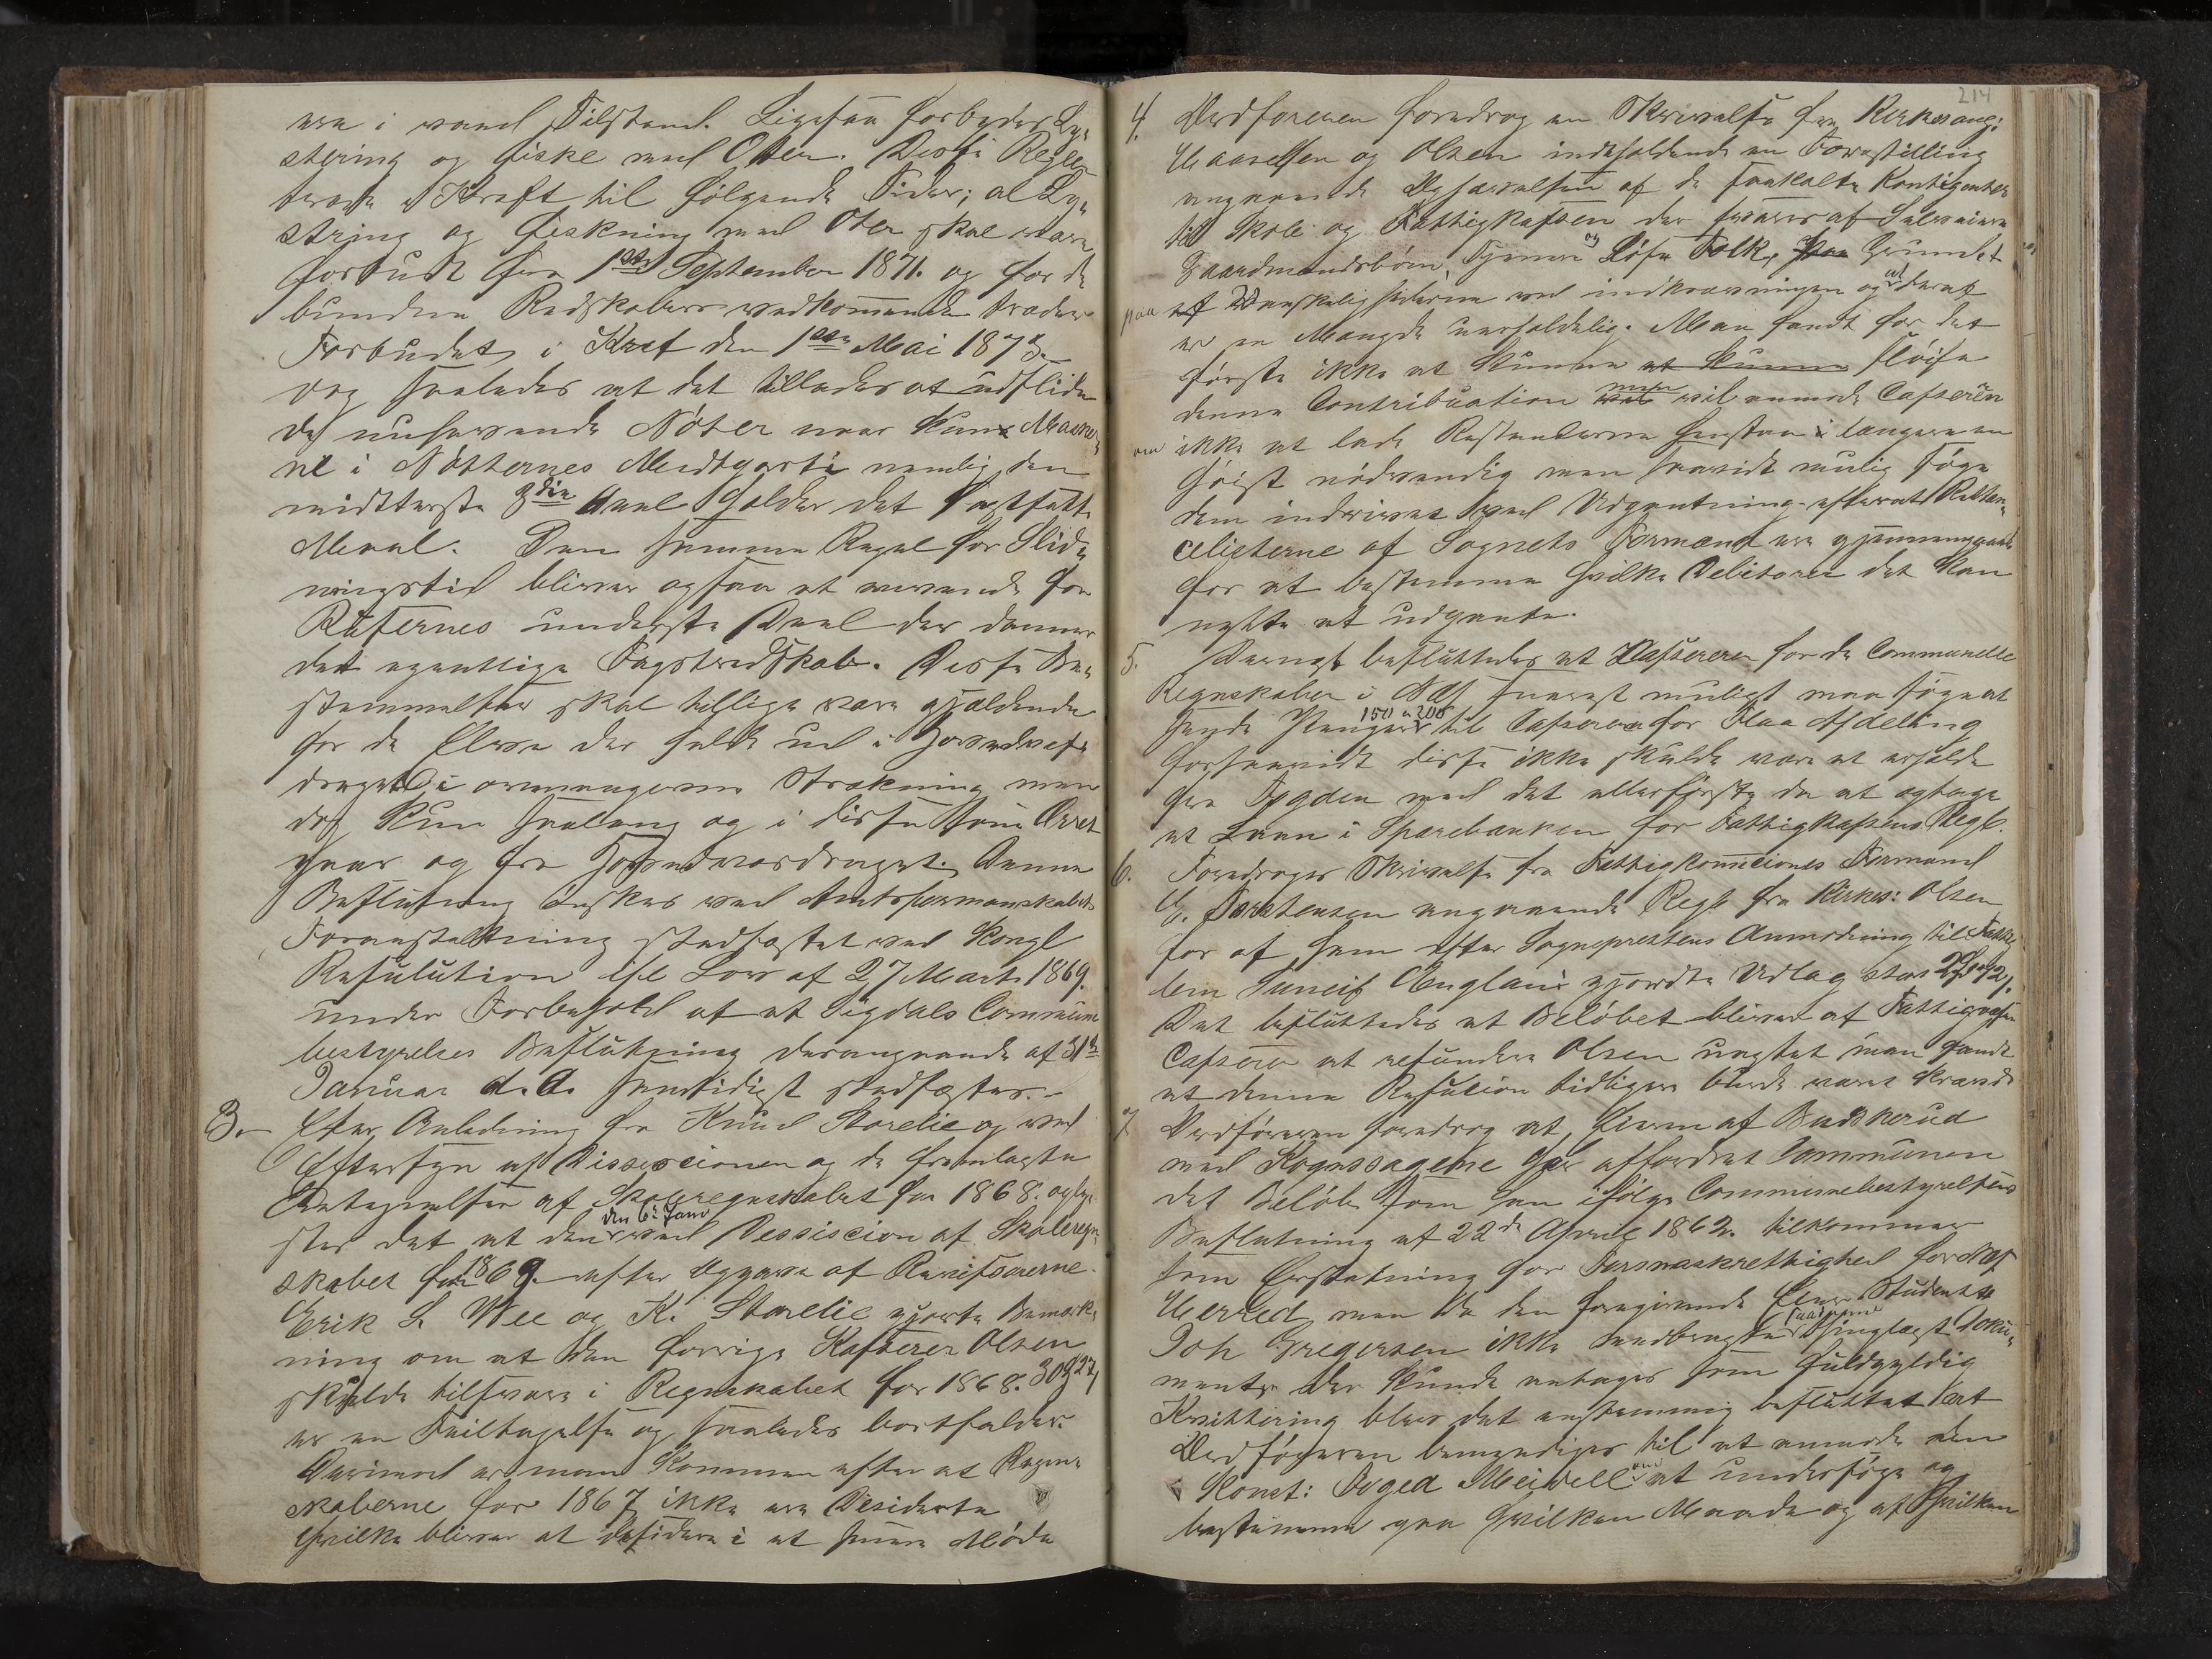 ere i vaad Tilstand. Ligesaa forbydes Ly-
string og Fiske med Otter. Disse Regler
træde i Kraft til følgende Tider; al Ly-
string og Fiskning med Oter skal være
forbudt fra 1ste September 1871. og for de
bundne Redskabers vedkommende træder
Forbudet i Kraft den 1ste Mai 1873.
dog saaledes at det tillades at udslide
de nuhavende Nöter naar kun Masker-
ne i Nötternes Midtparti nemlig den
midtterste 3die Deel holder det fastsatte
Maal. Den samme Regel for Slid-
ningstid bliver ogsaa at anvende for
Rusernes underste Deel der danner
det egentlige Fangstredskab. Disse Be-
stemmelser skal tillige være gjældende
for de Elve der falde ud i
draget i Strækning men
dog kun saalang og i disse som Ørret
gaar op fra . Denne
Beslutning önskes ved Amtsformandskabets
Foranstaltning stadfæstet ved Kongl
Resulution ifl Lov af 27 Marts 1869.
under Forbehold af at Sigdals Commune
bestyrelses Beslutning derangaaende af 31te
Januar d. A. samtidigt stadfæstes.-
3.- Efter Anledning fra Knud Storelie og ved
Eftersyn af Dissiscionen og de fremlagte
Antegnelser af Skoleregnskabet for 1868. oply-
stes det at den den 6te Janr ved Dessiscion af Skoleregn-
skabet for 1869. efter Opgave af Revisorerne
Erik L. Wee og K. Storelie gjorte Bemærk-
ning om at den forrige Kasserer Olsen
skulde tilsvare i Regnskabet for 1868. 30
er en Feiltagelse og saaledes bortfalder.
Derimod er man kommen efter at Regn-
skaberne for 1867 ikke ere Desiderte
hvilke bliver at desidere i et senere Möde
214
4. Ordföreren foredrog en Skrivelse fra Kirkesang:
Haavelsen og Olsen indeholdende en Forestilling
angaaende Ophævelsen af de saakaldte Kontigenter
til Skole og Fattigkassen der svares af Selveiere
Gaardmandsbörn, Tjenere og Löse Folk, Grundet
paa Vanskelighederne ved indkrævningen og at deraf
er en Mængde uerholdelig. Man fandt for det
förste ikke at kunne at kunne slöife
denne Contribuation men vil anmode Casseren
om ikke at lade Restanserne henstaa i længere en
höist nödvendig men saavidt mulig söge
dem inddrivet ved Udpantning efterat Restan-
celisterne af Sognets Formænd ere gjennemgaaede
for at bestemme hvilke Debitorer det kan
nytte at udpante.
5. Dernæst besluttedes at Kassereren for de Communelle
Regnskaber i Næs snarest muligt maa söge at
sende Penger 150 a 200 til Casseren for Flaa Afdeling
forsaavidt disse ikke skulde være at erholde
fra Fogden med det allerförste da at optage
et Laan i Sparebanken for Fattigkassens Regl.
6. Foredroges Skrivelse fra Fattigkomicions Formand
Torstensen angaaende Regl fra Kirkes: Olsen
for af ham efter Sogneprestens Anmodning til Fattig-
lem gjordte Udlag stor 2
Det besluttedes at Belöbet bliver af Fattigvæsen
Casserer at refundere Olsen uagtet man fandt
at denne Refution tidligere burde været krævet
7 Ordföreren foredrog at, Eieren af Buskerud
med Kognssagene har affordret Communen
det Belöb som han ifölge Communebestyrelsens
Beslutning af 22de April 1862. tilkommer
som Erstatning for Fornnaskrettighed for Næs
Herred, men da den foregivende Eier Student
Joh Gregersen ikke saadanne thinglæst Doku-
menter der kunde antages som fuldgyldig
Kvittering blev det enstemmig besluttet at
Ordföreren bemyndiges til at anmode den
Konst: Foged Meidell om at undersöge og
bestemme paa hvilken Maade og af hvilken